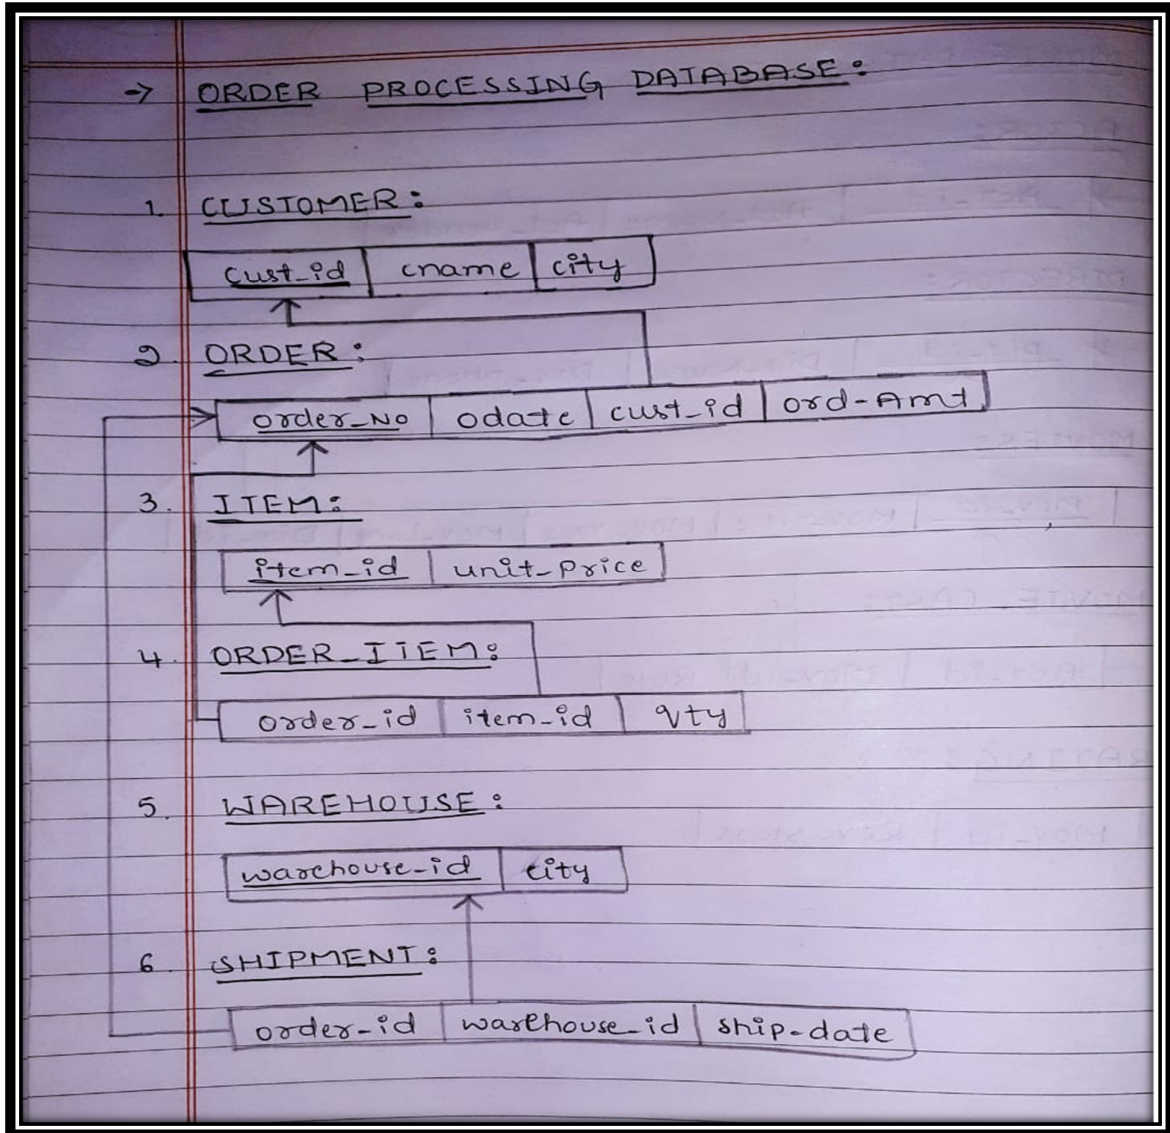 → ORDER PROCESSING DATABASE:
1. CUSTOMER:
cust_id cname city
2. ORDER:
order_No odate cust_id ord-Amt
3. ITEM:
item_id unit_price
4. ORDER_ITEM:
order_id item_id qty
5. WAREHOUSE:
warehouse_id city
6. SHIPMENT:
order_id warehouse_id ship-date